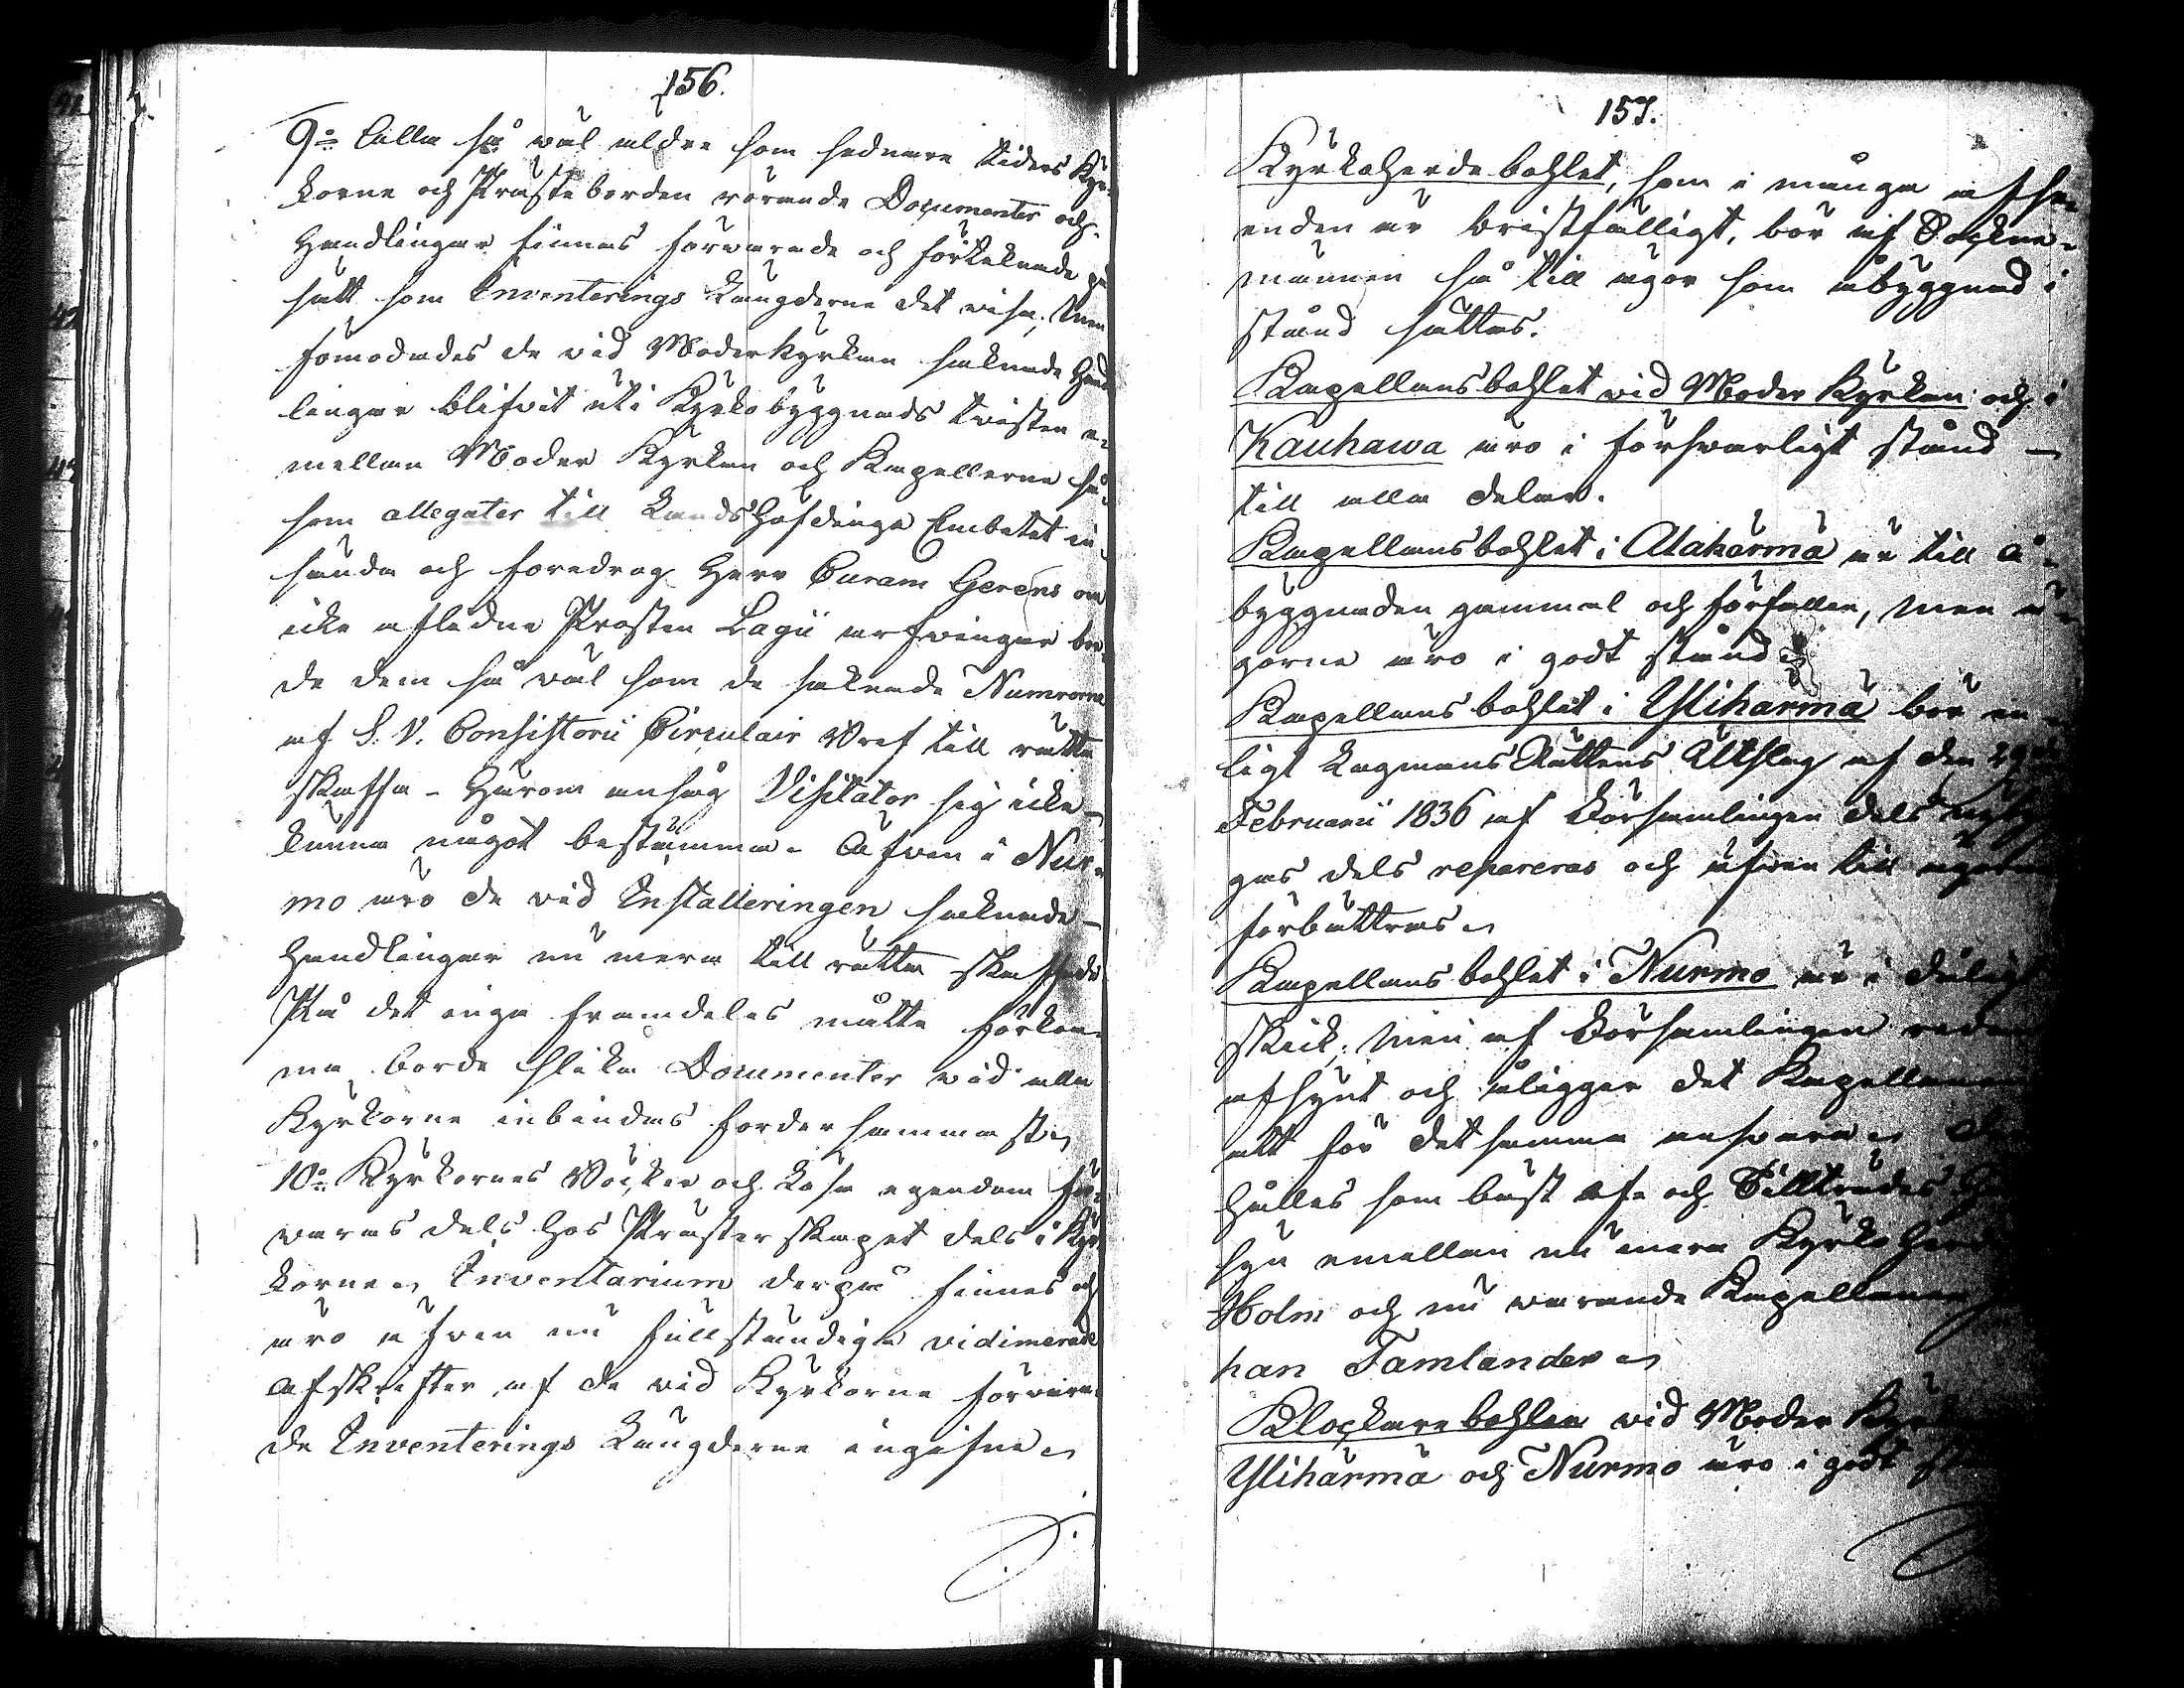 156.
9:o Alla så väl äldre som sednare tiders Kyr-
korne och Prästeborden rörande Documenter och
Handlingar finnas förvarade och förtecknade på
sätt som Inventerings Längderne det visa; Men
förmodades de vid Moderkyrkan saknade Hand
lingar blifvit uti Kyrkobyggnads tvisten e-
mellan Moder Kyrkan och Kapellerne så-
som allegater till Landshöfdinge Embetet in-
sända och föredrog Herr Curam Gerens om
icke aflidne Prosten Lagii arfvingar bor-
de dem så väl som de saknade Numrorna
af S. V. Consistorii Circulair Bref till rätta
skaffa – Hvarom ansåg Visitator sig icke
kunna något bestämma. Äfven i Nur-
mo äro de vid Installeringen saknade
Handlingar nu mera till rätta skaffade
På det inga framdeles måtte förkom-
ma borde slika Documenter vid alla
Kyrkorne inbindas fordersammast.
10:o Kyrkornes Böcker och lösa egendom för-
varas dels hos Prästerskapet dels i Kyr-
korne. Inventarium derpå finnes och
äro äfven nu fullständiga vidimerade
Afskrifter af de vid Kyrkorne förvara-
de Inventerings Längderne ingifne.
157.
Kyrkoherdebohlet, som i många afse-
enden är bristfälligt, bör af Sockne-
männen så till ägor som åbyggnad i
stånd sättas.
Kapellansbohlet vid Moder Kyrkan och i
Kauhawa äro i försvarligt stånd
till alla delar.
Kapellansbohlet i Alahärmä är till å-
byggnaden gammal och förfallen, men ä-
gorne äro i godt stånd
Kapellansbohlet i Ylihärmä bör en-
ligt Lagmans Rättens Utslag af den 29
Februarii 1836 af Församlingen dels nybyg
gas dels repareras och äfven till ägorne
förbättras.
Kapellansbohlet i Nurmo är i dåligt
skick, men af Församlingen redan
afsynt och åligger det Kapellanen
att för detsamma ansvara.
hålles som bäst af- och Tillträdes
syn emellan nu mera Kyrkoherden
Holm och nu varande Kapellanen
han Tamlander.
Klockarebohlen vid Moder Kyrkan
Ylihärmä och Nurmo äro i godt stånd